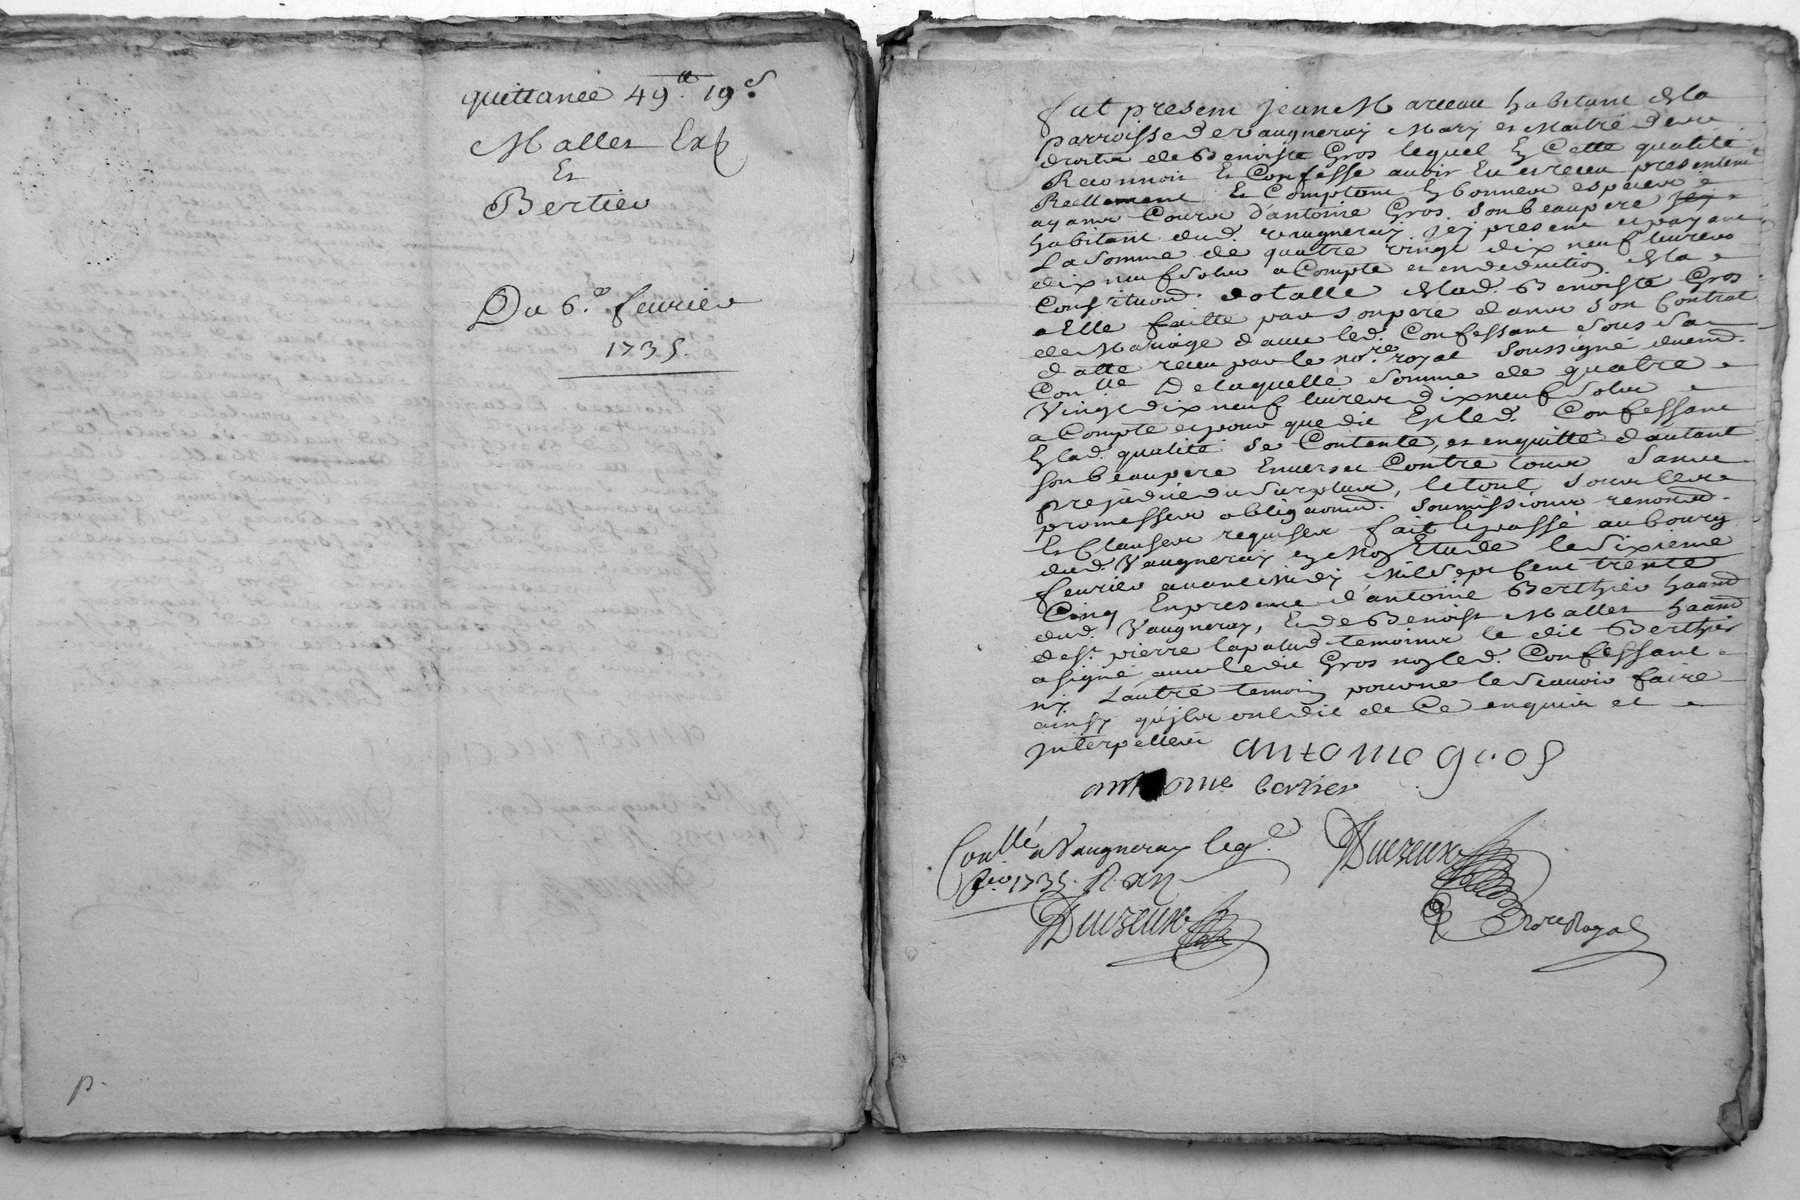 quittance 49ᵗᵗ 19ˢ
Mallet
Et
Bertier
Du 6ᵉ fevrier
1735.
p.
fut present jean Marceau habitant de la
parroisse de Vaugneray Mary et Maitre des
droits de Benoiste Gros lequel En Cette qualité
Reconnoit Et Confesse avoir Eu et receu presentemᵗ
Reellement Et Comptant En bonnes especes
ayant Cours d'antoine Gros son beaupere
habitant dud. vaugneray jcy present et payant
La somme de quatre vingt dix neuf livres
dix neuf sols a Compte et en deduction de la
Constituᵒⁿ dotalle de lad. Benoiste Gros
a Elle faitte par son pere dans son Contrat
de Mariage d'avec led. Confessant sous sa
datte receu par le noʳᵉ royal soussigné duemᵗ
Conˡˡᵉ De laquelle somme de quatre
Vingt dix neuf livres dix neuf sols
a Compte et pour que dit Est led. Confessant
En lad. qualité se Contente, et en quitte d'autant
son beaupere Envers et Contre tous sans
prejudice du surplus, le tout sous les
promesses obligaons. soumissions renonᵒⁿˢ.
Et Clauses requises fait et passé au bourg
dud. Vaugneray En Mon Etude le sixieme
fevrier avant Midy Mil sept Cent trente
Cinq En presence d'antoine Berthier
dud. Vaugneray, Et de Benoist Mallet
de sᵗ. pierre lapalud temoins le dit Berthier
a signé avec ledit Gros non led. Confessant
ny L'autre temoin pour ne le scavoir faire
ainsy qu'jls ont dit de Ce enquis et
jnterpellés
antome gros
anthome bertier
Conˡˡé a Vaugneray le 9ᵉ.
feo 1735. R.
Duizeux
Duizeux
Noʳᵉ Royal